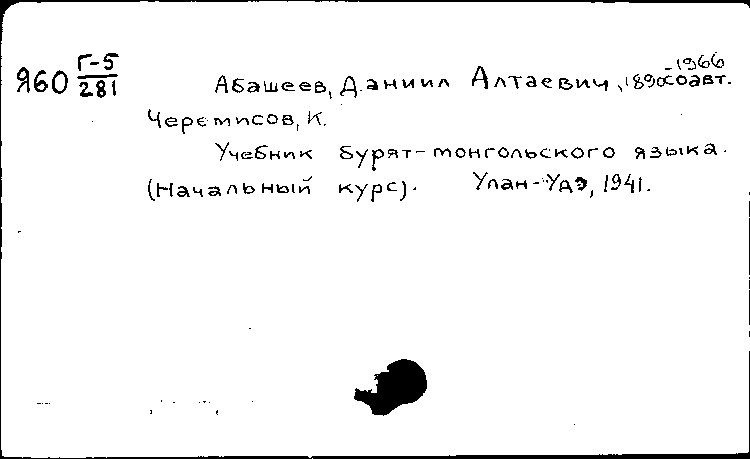 Я60 Г-5/281
Абашеев, Даниил Алтаевич, 1890-1966 соавт.
Черемисов, К.
Учебник бурят-монгольского языка.
(Начальный курс). Улан-Удэ, 1941.